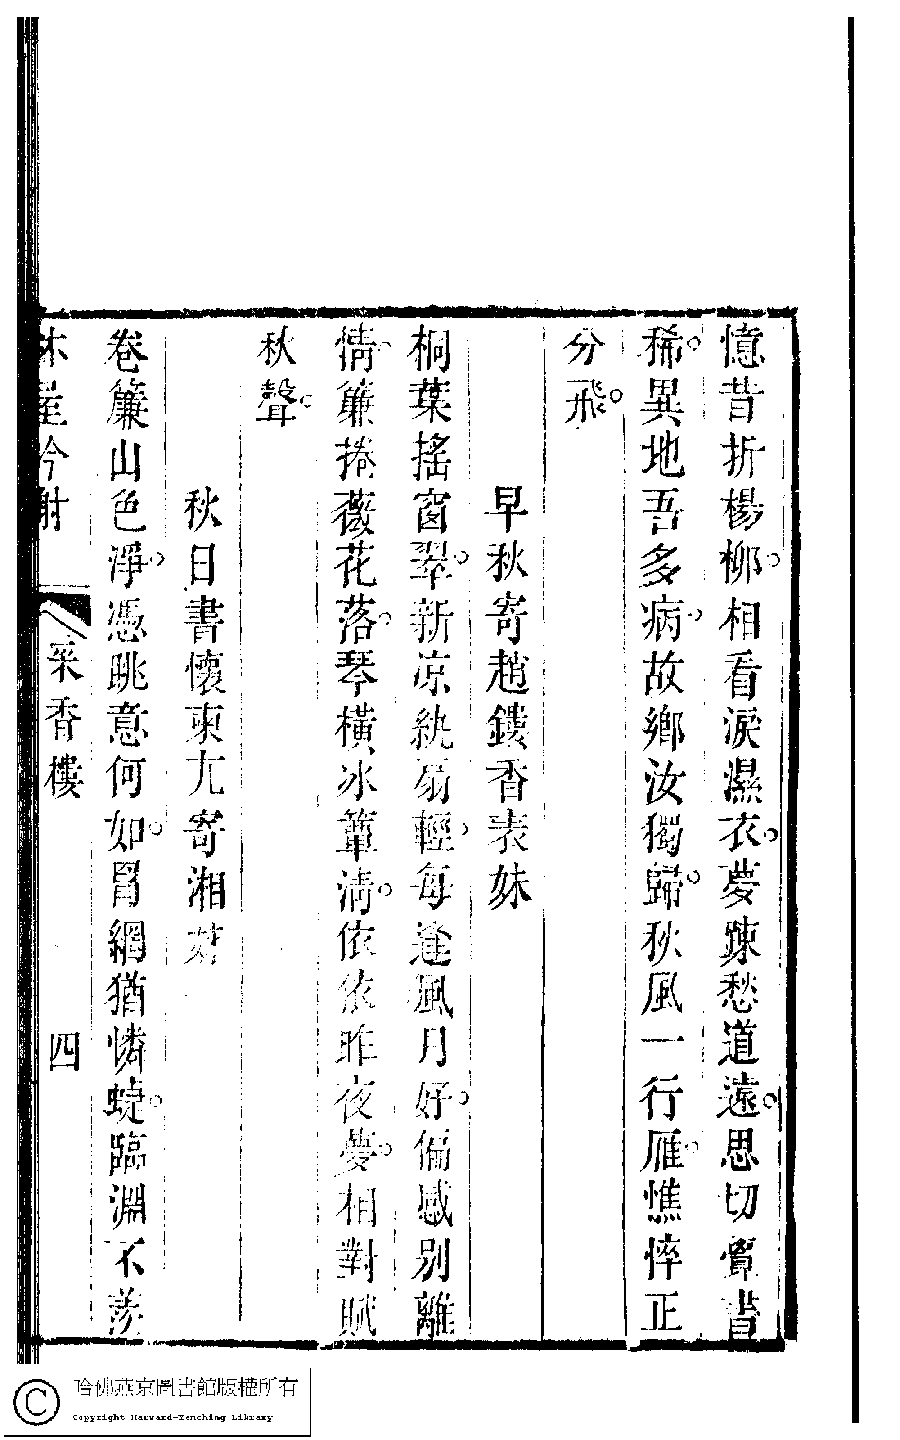 憶昔折楊柳。相看淚濕衣。夢疎愁道遠。思切覺書
稀。異地吾多病。故鄉汝獨歸。秋風一行雁。憔悴正
分飛。
早秋寄趙鏤香表妹
桐葉搖窗翠。新凉紈扇輕。每逢風月好。偏感別離
情。簾捲薇花落。琴橫冰簟清。依依昨夜夢。相對賦
秋聲。
秋日書懷柬尤寄湘
卷簾山色淨。憑眺意何如。罥網猶憐蜨。臨淵不羨
林屋吟榭
采香樓
四
哈佛燕京圖書館版權所有
Copyright Harvard-Yenching Library